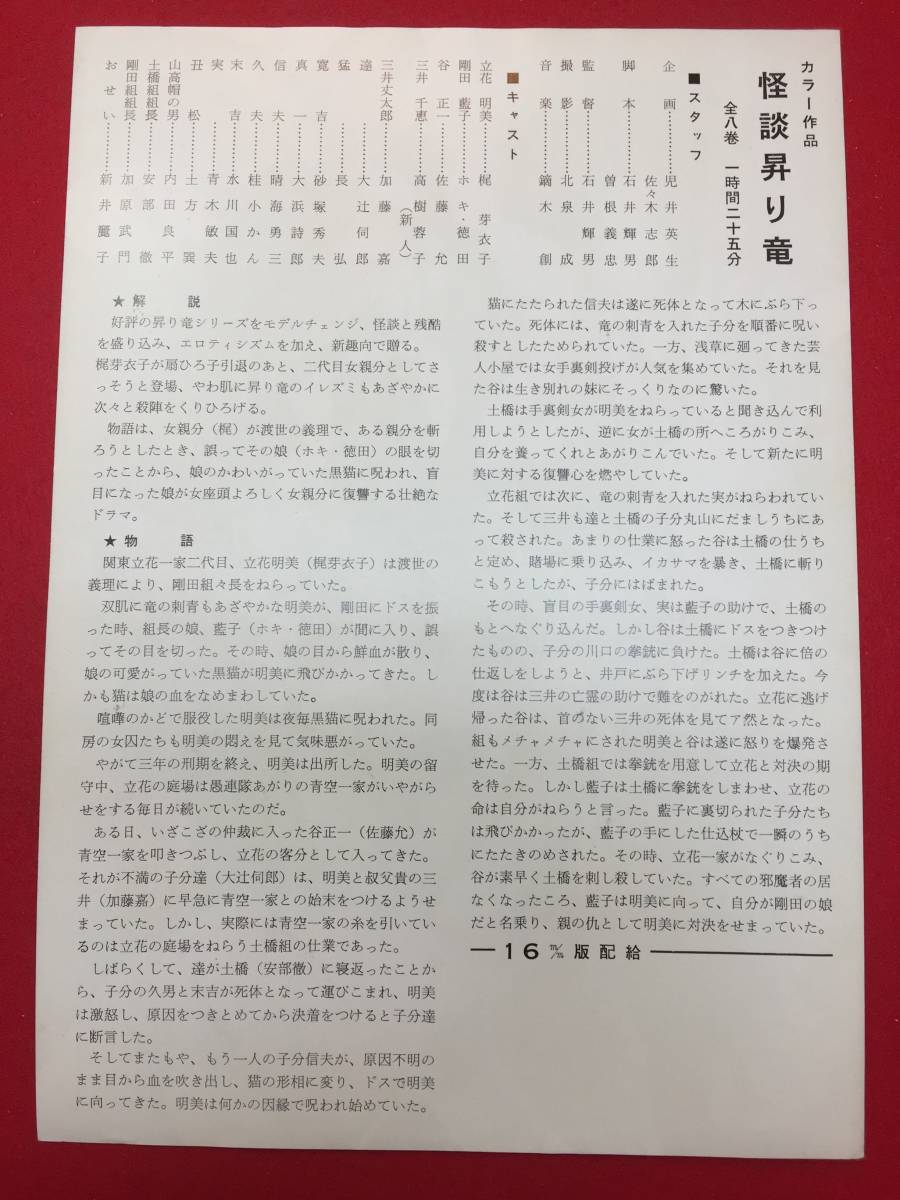 カラー作品
怪談昇り竜
全八巻 一時間二十五分
■スタッフ
企画………児井英生
佐々木志郎
脚本………石井輝男
曽根義忠
監督………石井輝男
撮影………北泉成
音楽………鏑木創
■キャスト
立花明美………梶芽衣子
剛田藍子………ホキ・徳田
谷正一………佐藤允
三井千恵………高樹蓉子
(新人)
三井丈太郎………加藤嘉
達………大辻伺郎
猛………長弘
寛吉………砂塚秀夫
真一………大浜詩郎
信夫………晴海勇三
久夫………桂小かん
末吉………水川国也
実………青木敏夫
丑松………土方巽
山高帽の男………内田良平
土橋組組長………安部徹
剛田組組長………加原武門
おせい………新井麗子
★解説
好評の昇り竜シリーズをモデルチェンジ、怪談と残酷
を盛り込み、エロティシズムを加え、新趣向で贈る。
梶芽衣子が扇ひろ子引退のあと、二代目女親分としてさ
っそうと登場、やわ肌に昇り竜のイレズミもあざやかに
次々と殺陣をくりひろげる。
物語は、女親分（梶）が渡世の義理で、ある親分を斬
ろうとしたとき、誤ってその娘（ホキ・徳田）の眼を切
ったことから、娘のかわいがっていた黒猫に呪われ、盲
目になった娘が女座頭よろしく女親分に復讐する壮絶な
ドラマ。
★物語
関東立花一家二代目、立花明美（梶芽衣子）は渡世の
義理により、剛田組々長をねらっていた。
双肌に竜の刺青もあざやかな明美が、剛田にドスを振
った時、組長の娘、藍子（ホキ・徳田）が間に入り、誤
ってその目を切った。その時、娘の目から鮮血が散り、
娘の可愛がっていた黒猫が明美に飛びかかってきた。し
かも猫は娘の血をなめまわしていた。
喧嘩のかどで服役した明美は夜毎黒猫に呪われた。同
房の女囚たちも明美の悶えを見て気味悪がっていた。
やがて三年の刑期を終え、明美は出所した。明美の留
守中、立花の庭場は愚連隊あがりの青空一家がいやがら
せをする毎日が続いていたのだ。
ある日、いざこざの仲裁に入った谷正一（佐藤允）が
青空一家を叩きつぶし、立花の客分として入ってきた。
それが不満の子分達（大辻伺郎）は、明美と叔父貴の三
井（加藤嘉）に早急に青空一家との始末をつけるようせ
まっていた。しかし、実際には青空一家の糸を引いてい
るのは立花の庭場をねらう土橋組の仕業であった。
しばらくして、達が土橋（安部徹）に寝返ったことか
ら、子分の久男と末吉が死体となって運びこまれ、明美
は激怒し、原因をつきとめてから決着をつけると子分達
に断言した。
そしてまたもや、もう一人の子分信夫が、原因不明の
まま目から血を吹き出し、猫の形相に変り、ドスで明美
に向ってきた。明美は何かの因縁で呪われ始めていた。
猫にたたられた信夫は遂に死体となって木にぶら下っ
ていた。死体には、竜の刺青を入れた子分を順番に呪い
殺すとしたためられていた。一方、浅草に廻ってきた芸
人小屋では女手裏剣投げが人気を集めていた。それを見
た谷は生き別れの妹にそっくりなのに驚いた。
土橋は手裏剣女が明美をねらっていると聞き込んで利
用しようとしたが、逆に女が土橋の所へころがりこみ、
自分を養ってくれとあがりこんでいた。そして新たに明
美に対する復讐心を燃やしていた。
立花組では次に、竜の刺青を入れた実がねらわれてい
た。そして三井も達と土橋の子分丸山にだましうちにあ
って殺された。あまりの仕業に怒った谷は土橋の仕うち
と定め、賭場に乗り込み、イカサマを暴き、土橋に斬り
こもうとしたが、子分にはばまれた。
その時、盲目の手裏剣女、実は藍子の助けで、土橋の
もとへなぐり込んだ。しかし谷は土橋にドスをつきつけ
たものの、子分の川口の拳銃に負けた。土橋は谷に倍の
仕返しをしようと、井戸にぶら下げリンチを加えた。今
度は谷は三井の亡霊の助けで難をのがれた。立花に逃げ
帰った谷は、首のない三井の死体を見てア然となった。
組もメチャメチャにされた明美と谷は遂に怒りを爆発さ
せた。一方、土橋組では拳銃を用意して立花と対決の期
を待った。しかし藍子は土橋に拳銃をしまわせ、立花の
命は自分がねらうと言った。藍子に裏切られた子分たち
は飛びかかったが、藍子の手にした仕込杖で一瞬のうち
にたたきのめされた。その時、立花一家がなぐりこみ、
谷が素早く土橋を刺し殺していた。すべての邪魔者の居
なくなったころ、藍子は明美に向って、自分が剛田の娘
だと名乗り、親の仇として明美に対決をせまっていた。
16m/m版配給